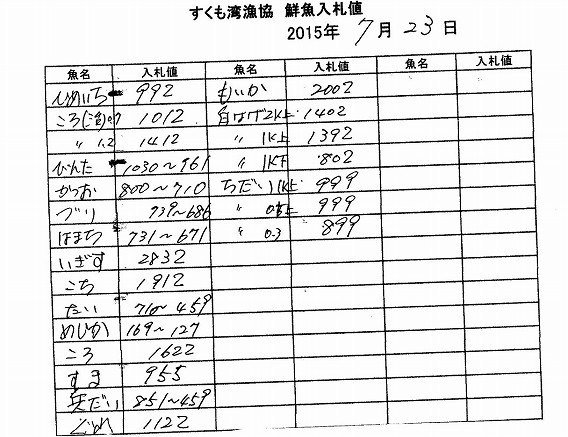 すくも湾漁協 鮮魚入札値
2015年 7月 23日
魚名 入札値 魚名 入札値 魚名 入札値
ひめいち 992 もいか 2002
ころ 1012 2K上 1402
〃 1.2 1412 〃 1K上 1392
びんた 1030~961 〃 1K下 802
かつお 800~710 ちだい 1K上 999
づり 739~686 〃 999
はまち 731~671 〃 0.3 899
いぎす 2832
こち 1912
たい 710~459
めじか 169~127
ころ 1622
すま 955
兵だい 851~459
ぐれ 1122